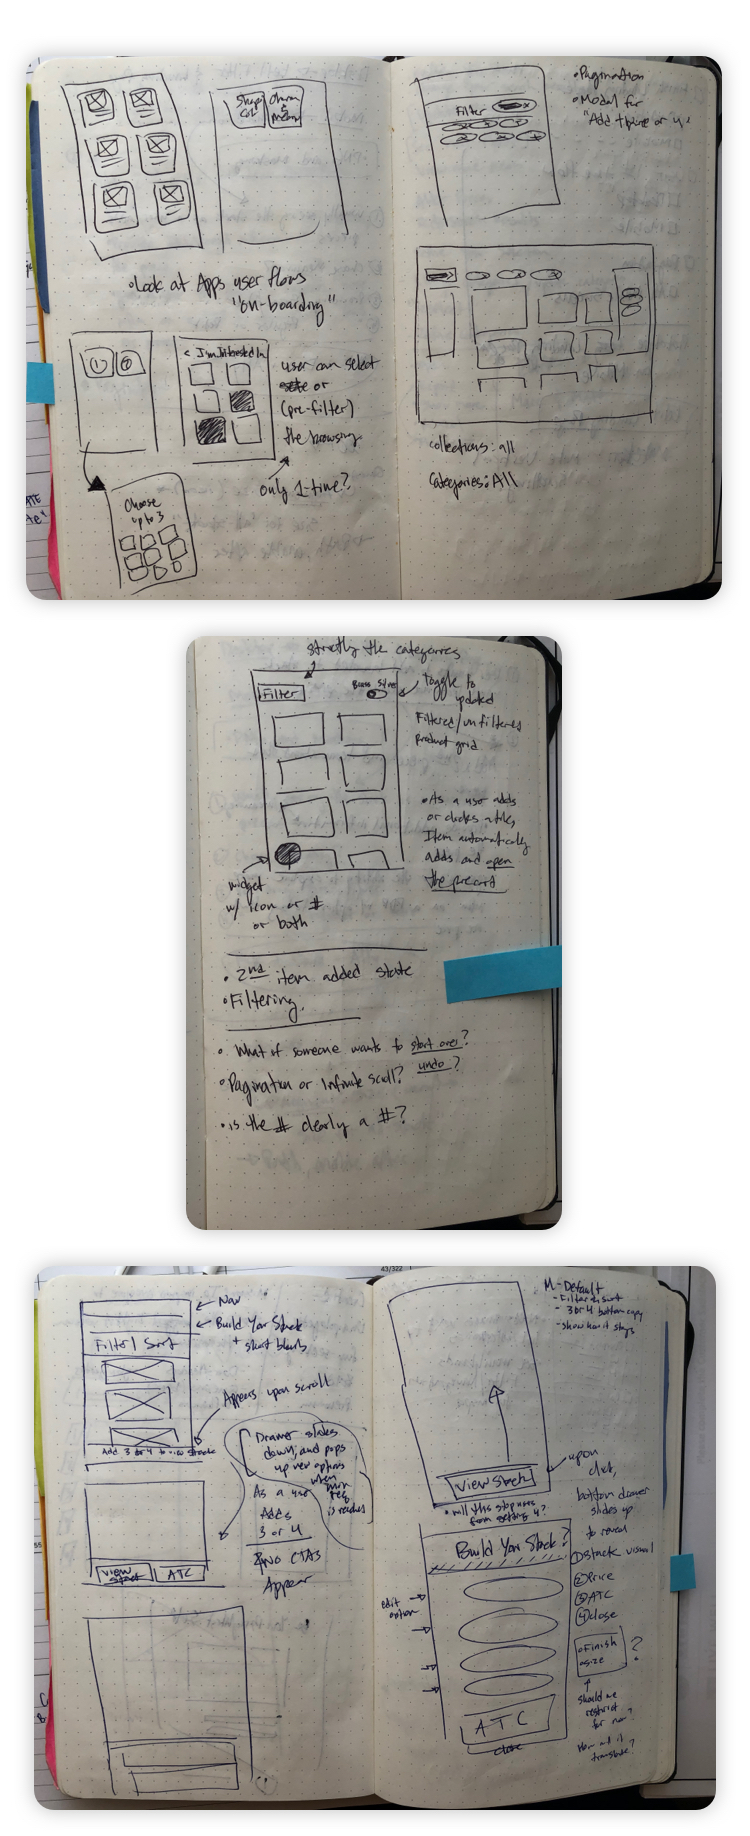 Shop
Charm
•Look at Apps user flows
"on-boarding"
1
2
< I'm Interested In
user can select
or
(pre-filter)
the browsing
only 1-time?
Choose
up to 3
•Pagination
•Modal for
"Add three or 4"
Filter
collections: all
Categories: All
strictly the categories
Filter
Silver
toggle to
updated
Filtered/unfiltered
product grid
•As a user adds
or clicks a tile,
Item automatically
adds and open
the precart
widget
w/ icon or #
or both
•2nd item added state
•Filtering.
•What if someone wants to start over?
undo?
•Pagination or Infinite scroll?
•is the # clearly a #?
43/322
Nav
Build Your Stack
+ short blurb
Filter | Sort
Appears upon scroll
Add 3 or 4 to view stack
Drawer slides
down, and pops
up new options
when
min
req
is reached
As a user
Adds
3 or 4
CTAs
Appear
View
Stack
ATC
M-Default
- Filter & sort
- 3 or 4 bottom copy
- show how it stays
View Stack
upon
click,
bottom drawer
slides up
to reveal
①Stack visual
②Price
③ATC
④close
•will this stop users
from getting 4?
Build Your Stack?
edit
option
•Finish
•size
?
should we
restrict
for now?
How will it
translate?
ATC
close